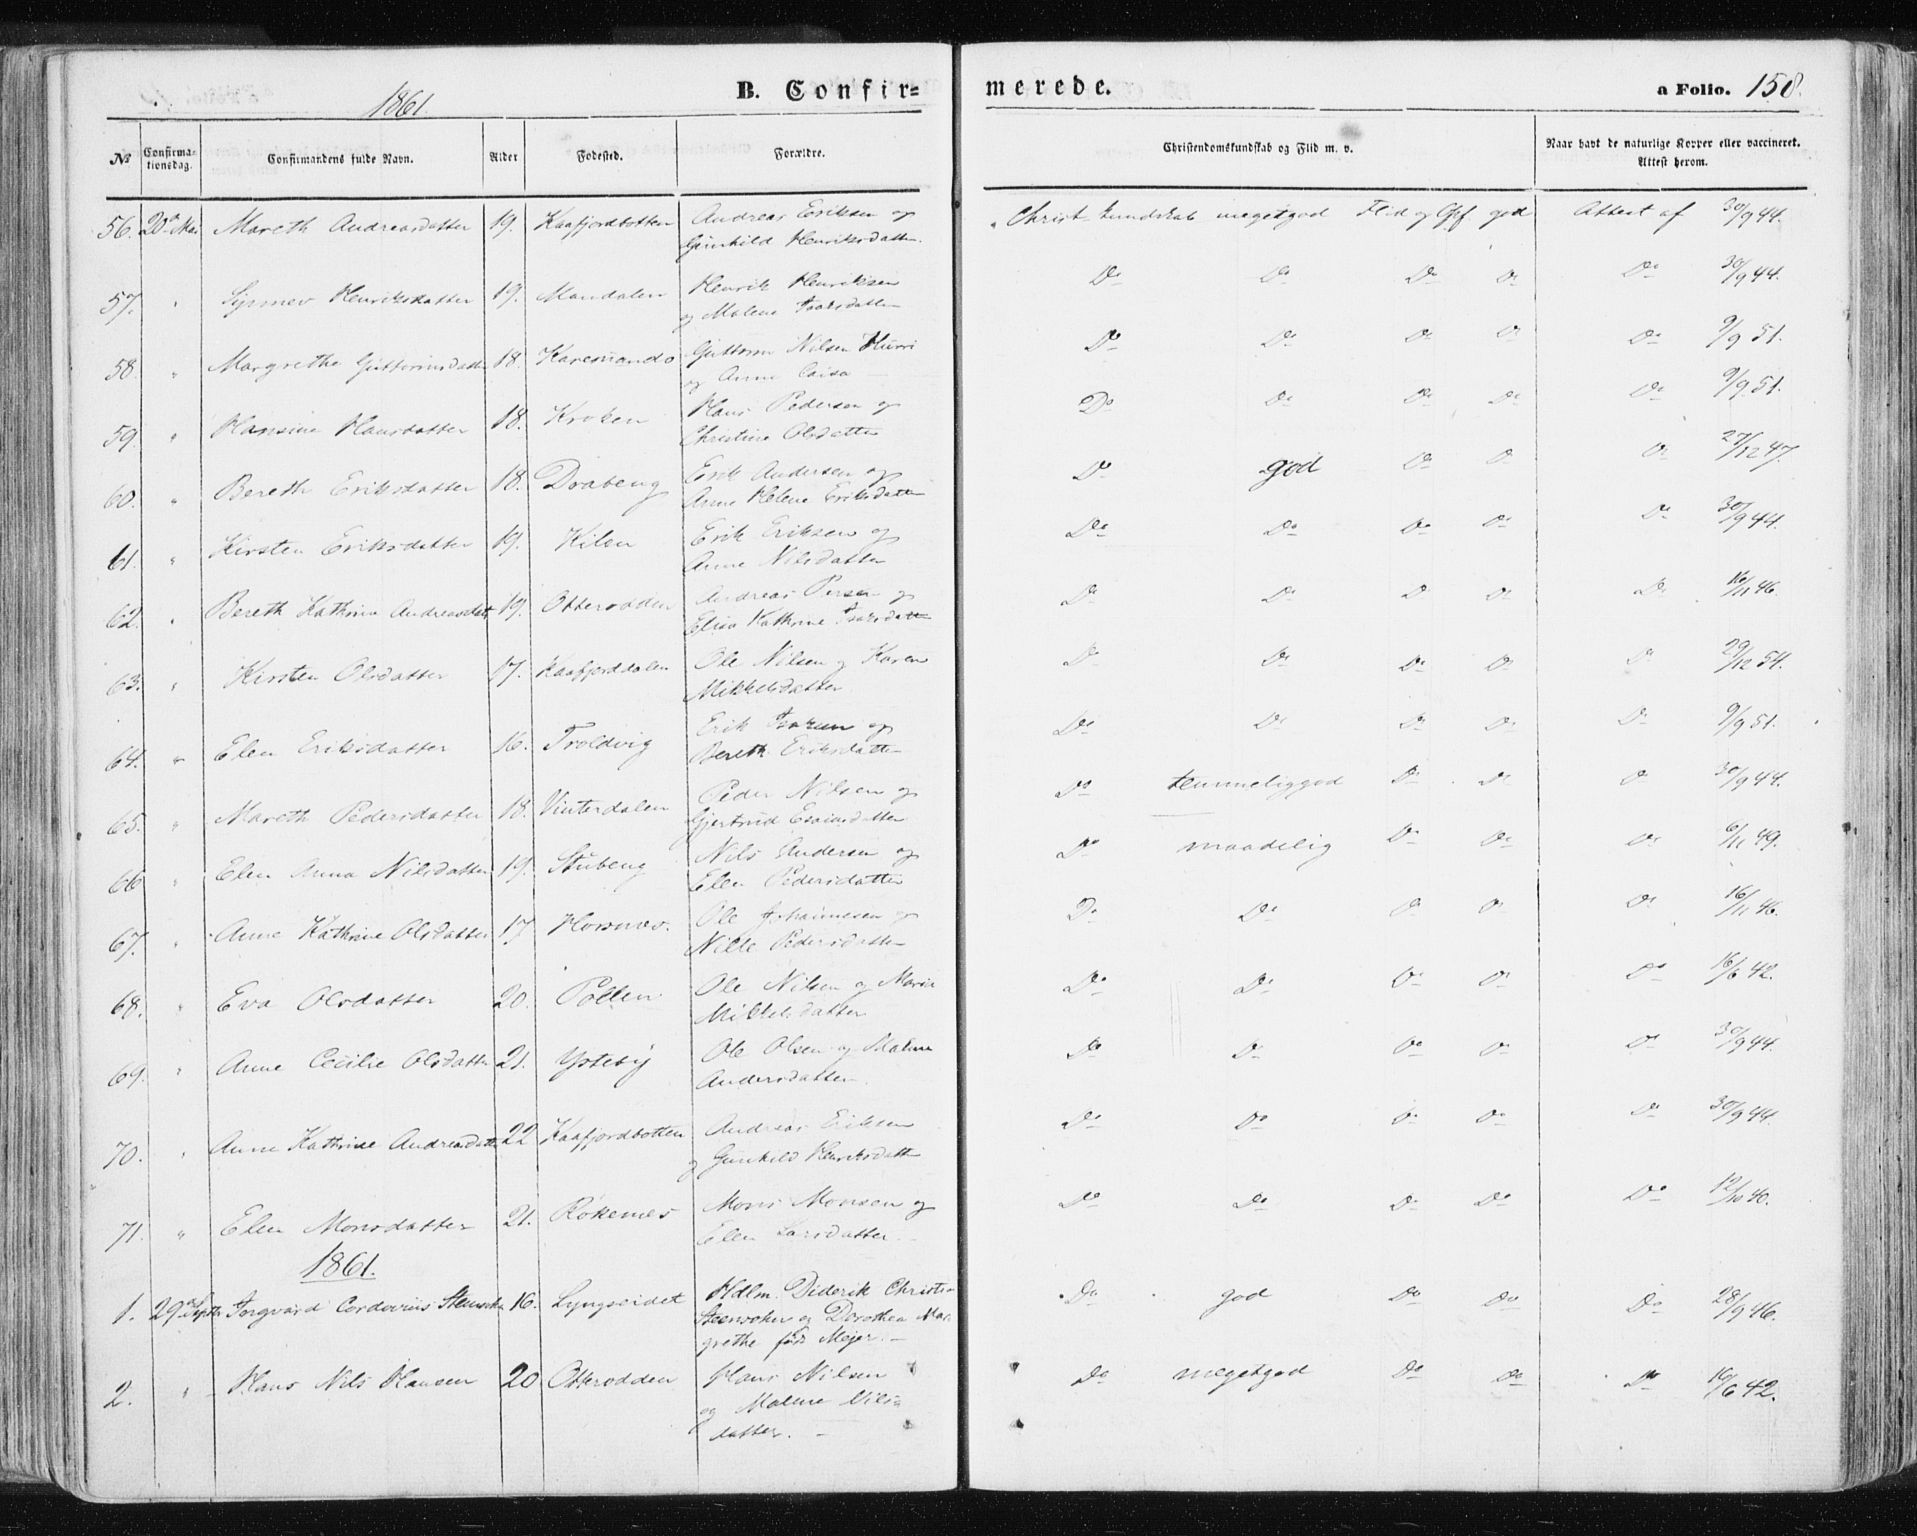 1861. B. Confir= merede. a Folio. 158.
No Confirma-tionsdag. Confirmandens fulde Navn. Alder Fodested. Forældre. Christendomskundskab og Flid m. v. Naar havt de naturlige Kopper eller vaccineret. Attest herom.
56. 20de Mai Mareth Andreasdatter 19. Kaafjordbotten Andreas Eriksen og Christ. kundskab megetgod Flid og Opf. god Attest af 30/9 44.
Gunhild Henriksdatter.
57. " Henriksdatter 19. Mandalen Henrik Henriksen Do Do Do Do Do 30/9 44.
og Malene Isaksdatter
58. " Margrethe Guttormsdatt 18. Karesuando Guttorm Nilsen Hurri Do Do Do Do Do 9/9 51.
og Anne Caisa
59. " Hansine Hansdatter 18. Kroken Hans Pedersen og Do Do Do Do Do 9/9 51.
Christine Olsdatter
60. " Bereth Eriksdatter 18. Draabeng Erik Andersen og Do god Do Do Do 27/12 47.
Anne Helene Eriksdatter
61. " Kirsten Eriksdatter 19. Kilen Erik Eriksen og Do Do Do Do Do 30/9 44.
Anne Nilsdatter
62. " Bereth Kathrine Andreasdatt 19. Otterodden Andreas Persen og Do Do Do Do Do 16/11 46.
Elisa Kathrine Isaksdatter
63. " Kirsten Olsdatter 17. Kaafjorddalen Ole Nilsen og Karen Do Do Do Do Do 29/12 54.
Mikkelsdatter
64. " Elen Eriksdatter 16. Troldvig Erik Isaksen og Do Do Do Do Do 9/9 51.
Bereth Eriksdatter
65. " Mareth Pedersdatter 18. Vinterdalen Peder Nilsen og Do temmeliggod Do Do Do 30/9 44.
Gjertrud Esaiasdatter
66 " Elen Anna Nilsdatter 19. Stubeng Nils Andersen og Do maadelig Do Do Do 6/11 49.
Elen Pedersdatter
67. " Anne Kathrine Olsdatter 17 Horsnes. Ole Johannesen og Do Do Do Do Do 16/11 46.
Nille Pedersdatter
68. " Eva Olsdatter 20. Pollen Ole Nilsen og Maria Do Do Do Do Do 16/6 42.
Mikkelsdatter
69. " Anne Cecilie Olsdatter 21. Ysteby Ole Olsen og Malene Do Do Do Do Do 30/9 44.
Andersdatter.
70. " Anne Kathrine Andreasdatt 22 Kaafjordbotten Andreas Eriksen Do Do Do Do Do 30/9 44.
og Gunhild Henriksdatt
71. " Elen Monsdatter 21. Rökenes Mons Monsen og Do Do Do Do Do 12/10 40.
Elen Larsdatter.
1861.
1. 29de Septbr Torgvard Cordovius 16. Lyngseidet Hdlm. Diderik Christi- Do god Do Do Do 28/9 46.
og Dorothea Mar
grethe født Mejer.
2. " Hans Nils Hansen 20 Otterodden Hans Nilsen Do megetgod Do Do Do 16/6 42.
og Malene Nils-
datter.